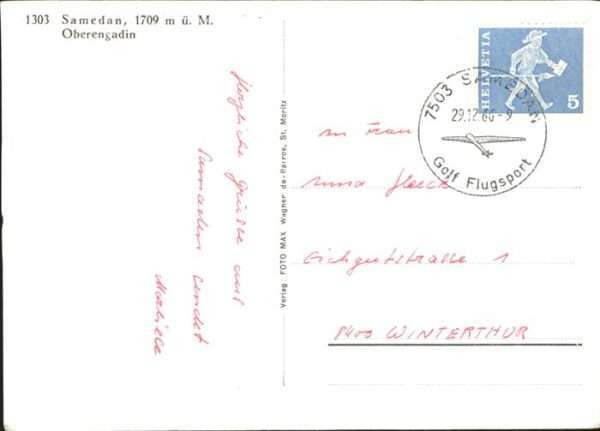 1303 Samedan, 1709 m ü. M.
Oberengadin
Herzliche Grüsse aus
Samaden sendet
Verlag FOTO MAX Wagner de-Parros, St. Moritz
HELVETIA
5
7503 SAMEDAN
29.12.66-9
Golf Flugsport
Frau
Anna
Eichgutstrasse 1
8400 WINTERTHUR